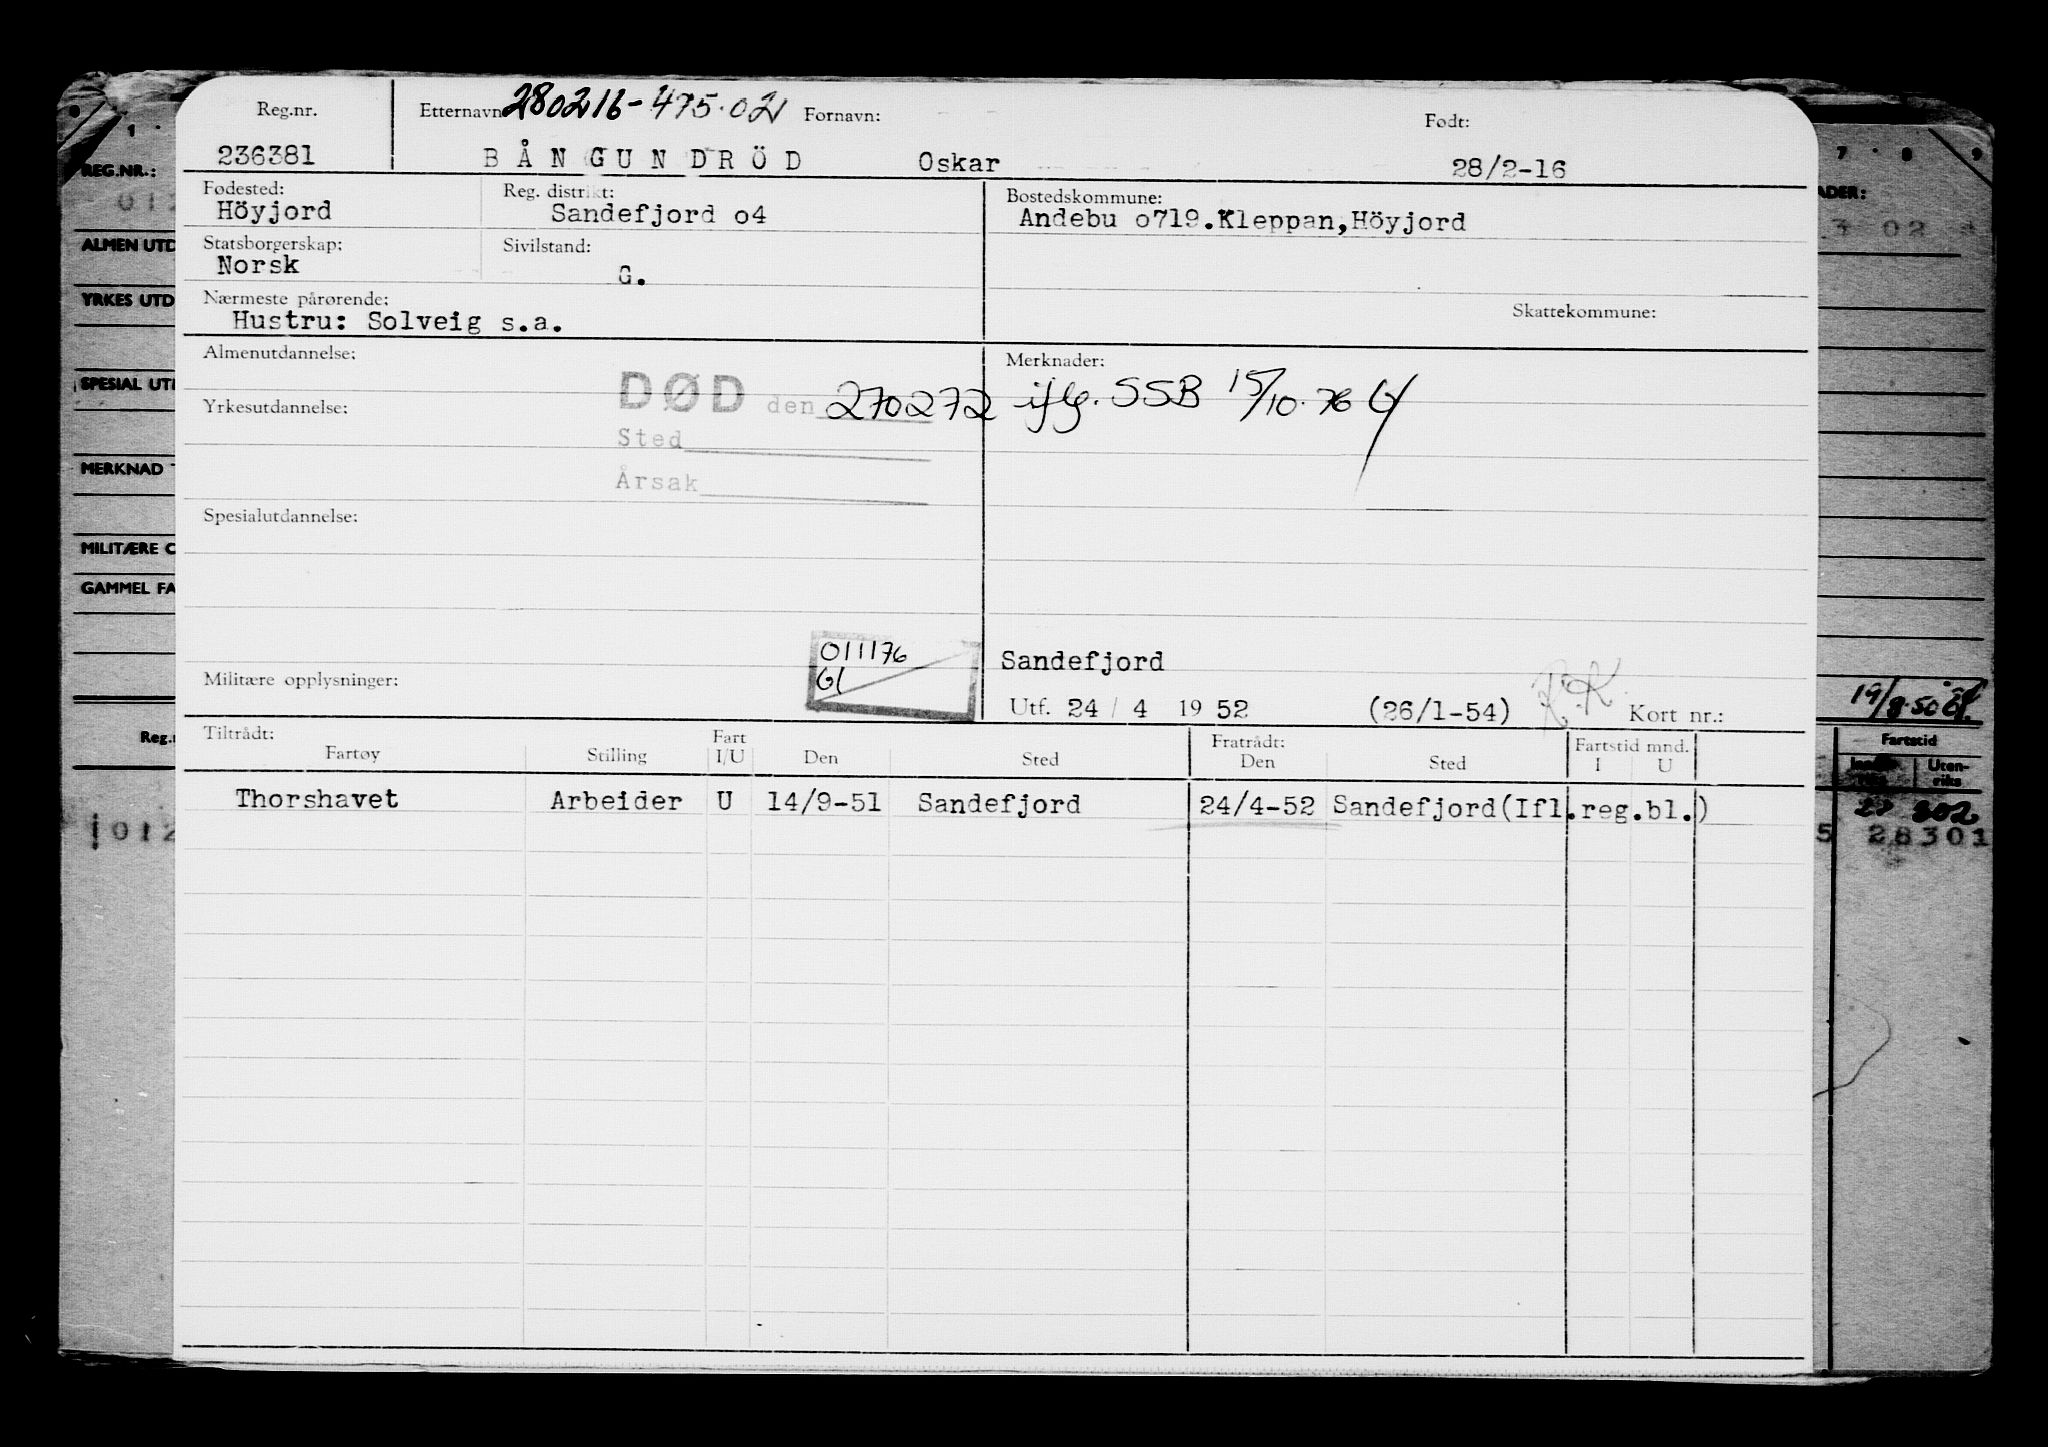 Reg.nr. Etternavn 280216-475.02 Fornavn: Født:
236381 BÅNGUNDRÖD Oskar 28/2-16
Fødested: Reg. distrikt: Bostedskommune:
Höyjord Sandefjord o4 Andebu o719.Kleppan,Höyjord
Statsborgerskap: Sivilstand:
Norsk G.
Nærmeste pårørende: Skattekommune:
Hustru: Solveig s.a.
Almenutdannelse: Merknader:
DØD den 270272 iflg. SSB 15/10.76
Yrkesutdannelse:
Sted
Årsak
Spesialutdannelse:
011176
Gl
Sandefjord
Militære opplysninger:
Utf. 24 / 4 19 52 (26/1-54) Kort nr.:
Tiltrådt: Fratrådt: Fartstid mnd.
Fartøy Stilling Fart I/U Den Sted Den Sted I U
Thorshavet Arbeider U 14/9-51 Sandefjord 24/4-52 Sandefjord(Ifl.reg.bl.)
1
REG.NR.:
012
ALMEN UTD
YRKES UTD
SPESIAL UT
MERKNAD
MILITÆRE
GAMMEL FA
Reg.
012
7 8 9
ADER:
02
19/8.50
Fartstid
Uten-
riks
802
5 28301